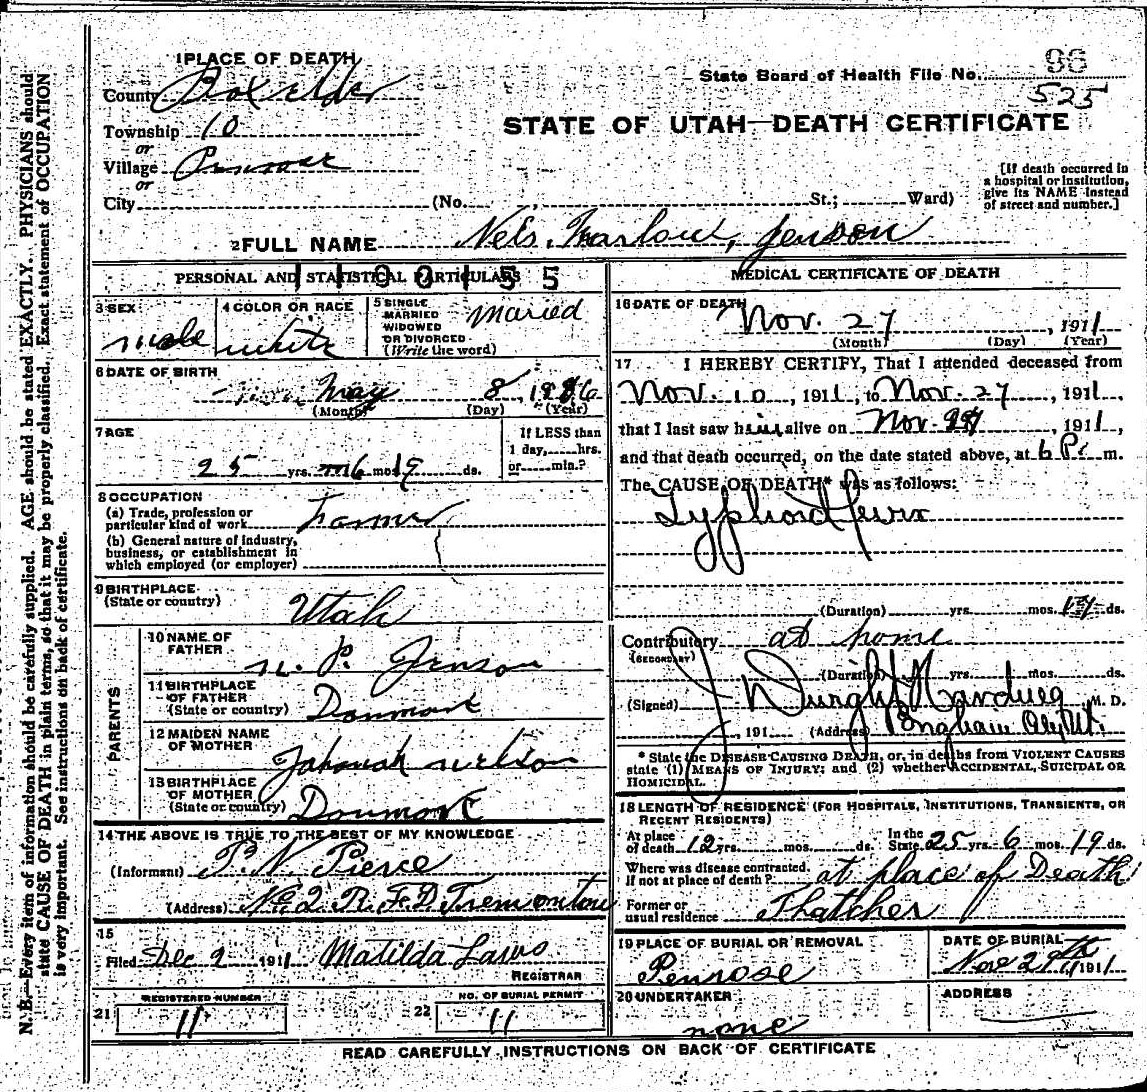 1 PLACE OF DEATH
County Box elder
Township 10
or
Village Penrose
or
City (No. St.; Ward)
State Board of Health File No. 96
525
STATE OF UTAH—DEATH CERTIFICATE
[If death occurred in
a hospital or institution,
give its NAME instead
of street and number.]
2 FULL NAME Nels, Marlow, Jenson
PERSONAL AND STATISTICAL PARTICULARS
1190155
3 SEX
male
4 COLOR OR RACE
white
5 SINGLE
MARRIED
WIDOWED
OR DIVORCED
(Write the word)
Maried
6 DATE OF BIRTH
May 8 1886
(Month) (Day) (Year)
7 AGE
25 yrs. 6 mos. 19 ds.
If LESS than
1 day, hrs.
or min.?
8 OCCUPATION
(a) Trade, profession or
particular kind of work Farmer
(b) General nature of industry,
business, or establishment in
which employed (or employer)
9 BIRTHPLACE
(State or country)
Utah
PARENTS
10 NAME OF
FATHER
N. P. Jenson
11 BIRTHPLACE
OF FATHER
(State or country)
Danmark
12 MAIDEN NAME
OF MOTHER
13 BIRTHPLACE
OF MOTHER
(State or country)
14 THE ABOVE IS TRUE TO THE BEST OF MY KNOWLEDGE
(Informant) P. N. Pierce
(Address) No 2 R. F. D. Tremonton
15
Filed Dec 2 1911 Matilda Laws
REGISTRAR
REGISTERED NUMBER
21 11
NO. OF BURIAL PERMIT
22 11
MEDICAL CERTIFICATE OF DEATH
16 DATE OF DEATH
Nov. 27, 1911
(Month) (Day) (Year)
17 I HEREBY CERTIFY, That I attended deceased from
Nov. 10, 1911, to Nov. 27, 1911,
that I last saw him alive on Nov. , 1911,
and that death occurred, on the date stated above, at 6 P. m.
The CAUSE OF DEATH* was as follows:
Typhoid fever
(Duration) yrs. mos. ds.
Contributory at home
(SECONDARY)
(Duration) yrs. mos. ds.
(Signed) Dwight M. D.
, 191 (Address)
* State the DISEASE CAUSING DEATH, or, in deaths from VIOLENT CAUSES
state (1) MEANS OF INJURY; and (2) whether ACCIDENTAL, SUICIDAL OR
HOMICIDAL.
18 LENGTH OF RESIDENCE (FOR HOSPITALS, INSTITUTIONS, TRANSIENTS, OR
RECENT RESIDENTS)
At place
of death 12 yrs. mos. ds.
In the
State 25 yrs. 6 mos. 19 ds.
Where was disease contracted,
If not at place of death? at place of Death
Former or
usual residence Thatcher
19 PLACE OF BURIAL OR REMOVAL
Penrose
DATE OF BURIAL
Nov 29th 1911
20 UNDERTAKER
none
ADDRESS
READ CAREFULLY INSTRUCTIONS ON BACK OF CERTIFICATE
N. B.—Every item of information should be carefully supplied. AGE should be stated EXACTLY. PHYSICIANS should
state CAUSE OF DEATH in plain terms, so that it may be properly classified. Exact statement of OCCUPATION
is very important. See instructions on back of certificate.